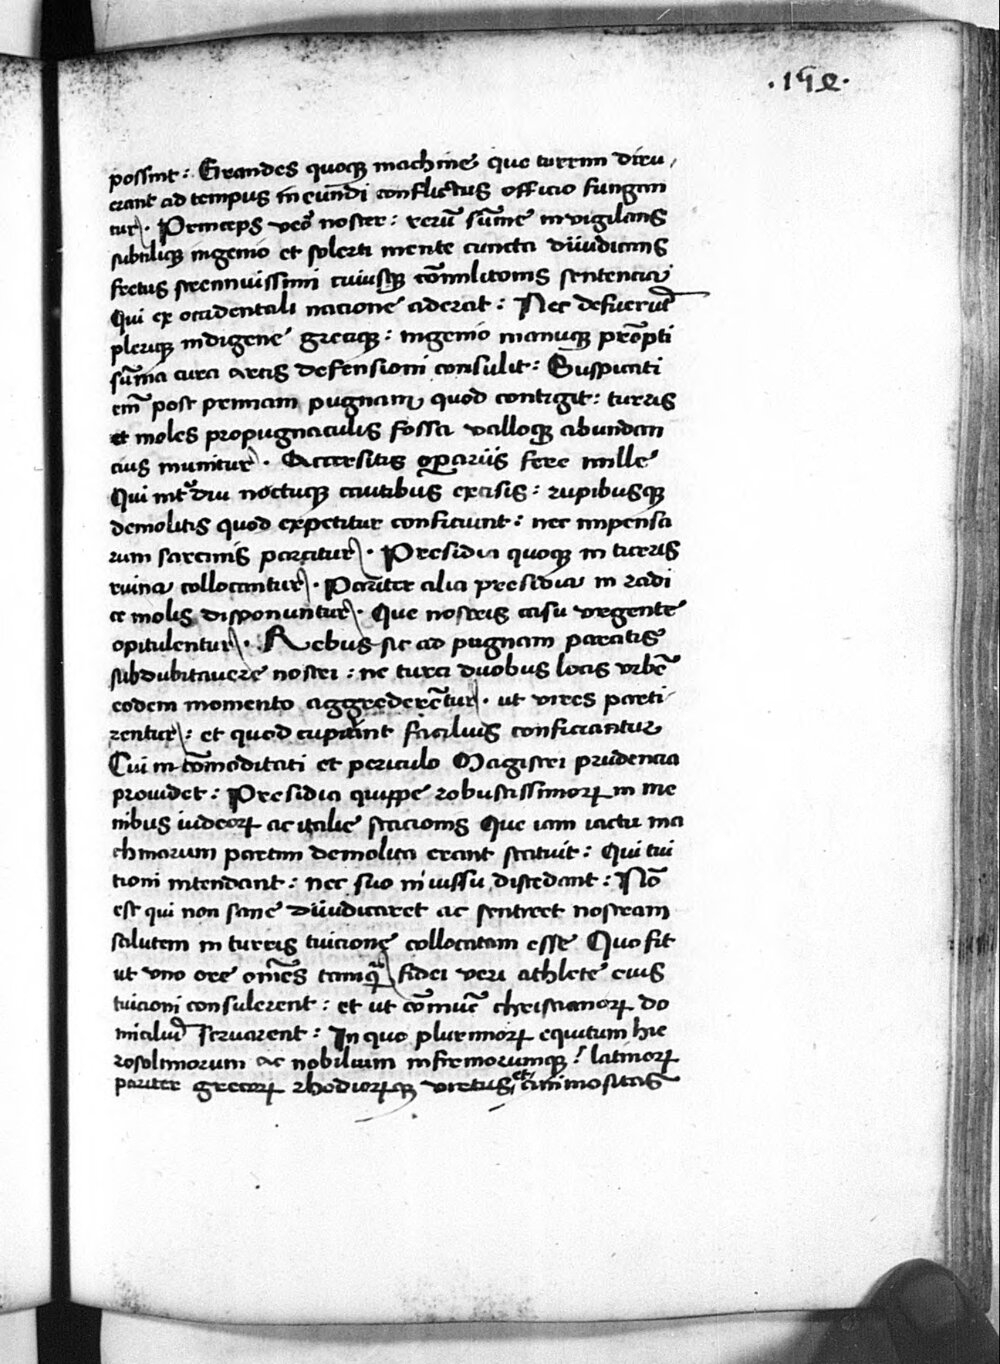 ·152·
possint: Grandes quoq machine que turrim diru,
erant ad tempus ineundi conflictus officio fungan
tur. Princeps vero noster: rerū sūme invigilans
subtiliq ingenio et solerti mente cuncta diiudicans
fretus strennuissimi cuiusq cōmilitonis sentencia
Qui ex occidentali nacione aderat: Nec defuerūt
pleriq indigene greciq: ingenio manuq prōpti
sūma cura arcis defensioni consulit: Suspicati
em̄ post primam pugnam quod contigit: turris
et moles propugnaculis fossa valloq abundan
cius munitur. Accersitis opariis fere mille
Qui int diu noctuq cautibus excisis: rupibusq
demolitis quod expetitur conficiunt: nec impensa
rum sarcinis parcitur. Presidia quoq in turris
ruina collocantur. Pariter alia presidia in radi
ce molis disponuntur. Que nostris casu vrgente
opitulentur. Rebus sic ad pugnam paratis
subdubitavere nostri: ne turci duobus locis vrbē
eodem momento aggrederētur. ut vires parti
rentur: et quod cupiunt facilius conficiantur
Cui incōmoditati et periculo Magistri prudencia
providet: Presidia quippe robustissimoꝝ in me
nibus iudeoꝝ ac italie stacionis Que iam iactu ma
chinarum partim demolita erant statuit: Qui tui
tioni intendant: nec suo iniussu discedant: Nō
est qui non sane diiudicaret ac sentiret nostram
salutem in turris tuicione collocatam esse Quo fit
ut vno ore om̄es tamq̄ fidei veri athlete eius
tuicioni consulerent: et ut cōmūe christianoꝝ do
miciliū servarent: In quo plurimoꝝ equitum hie
rosolimorum ac nobilium infirmorumq: latinoꝝ
pariter grecoꝝ rhodioꝝq virtus et animositas